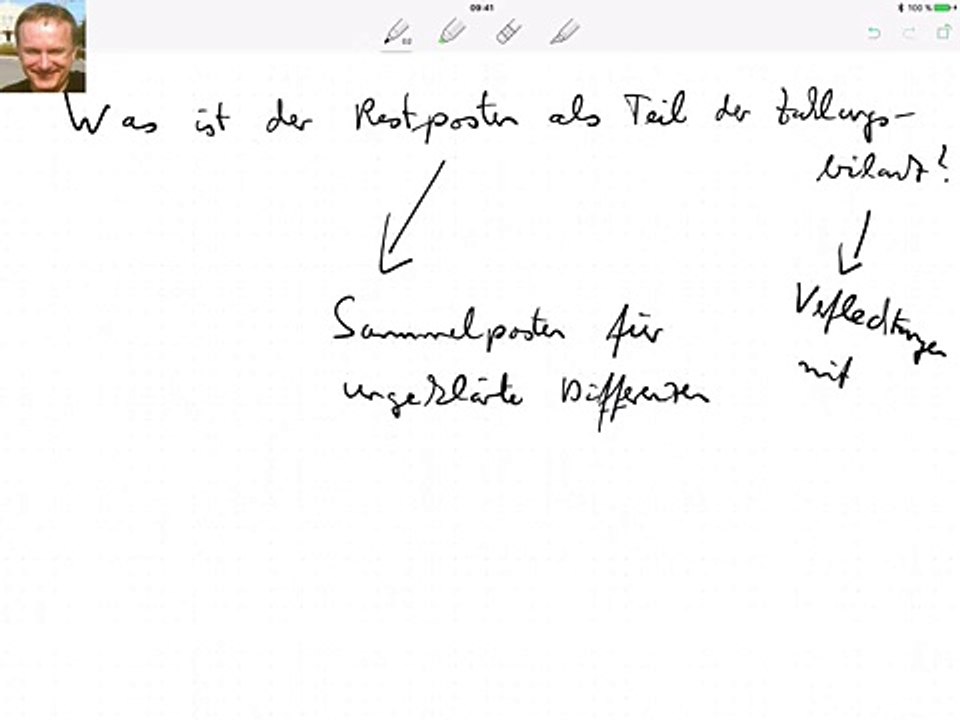 09:41
100 %
Was ist der Restposten als Teil der Zahlungs-
bilanz?
Sammelposten für
ungeklärte Differenzen
Verflechtungen
mit